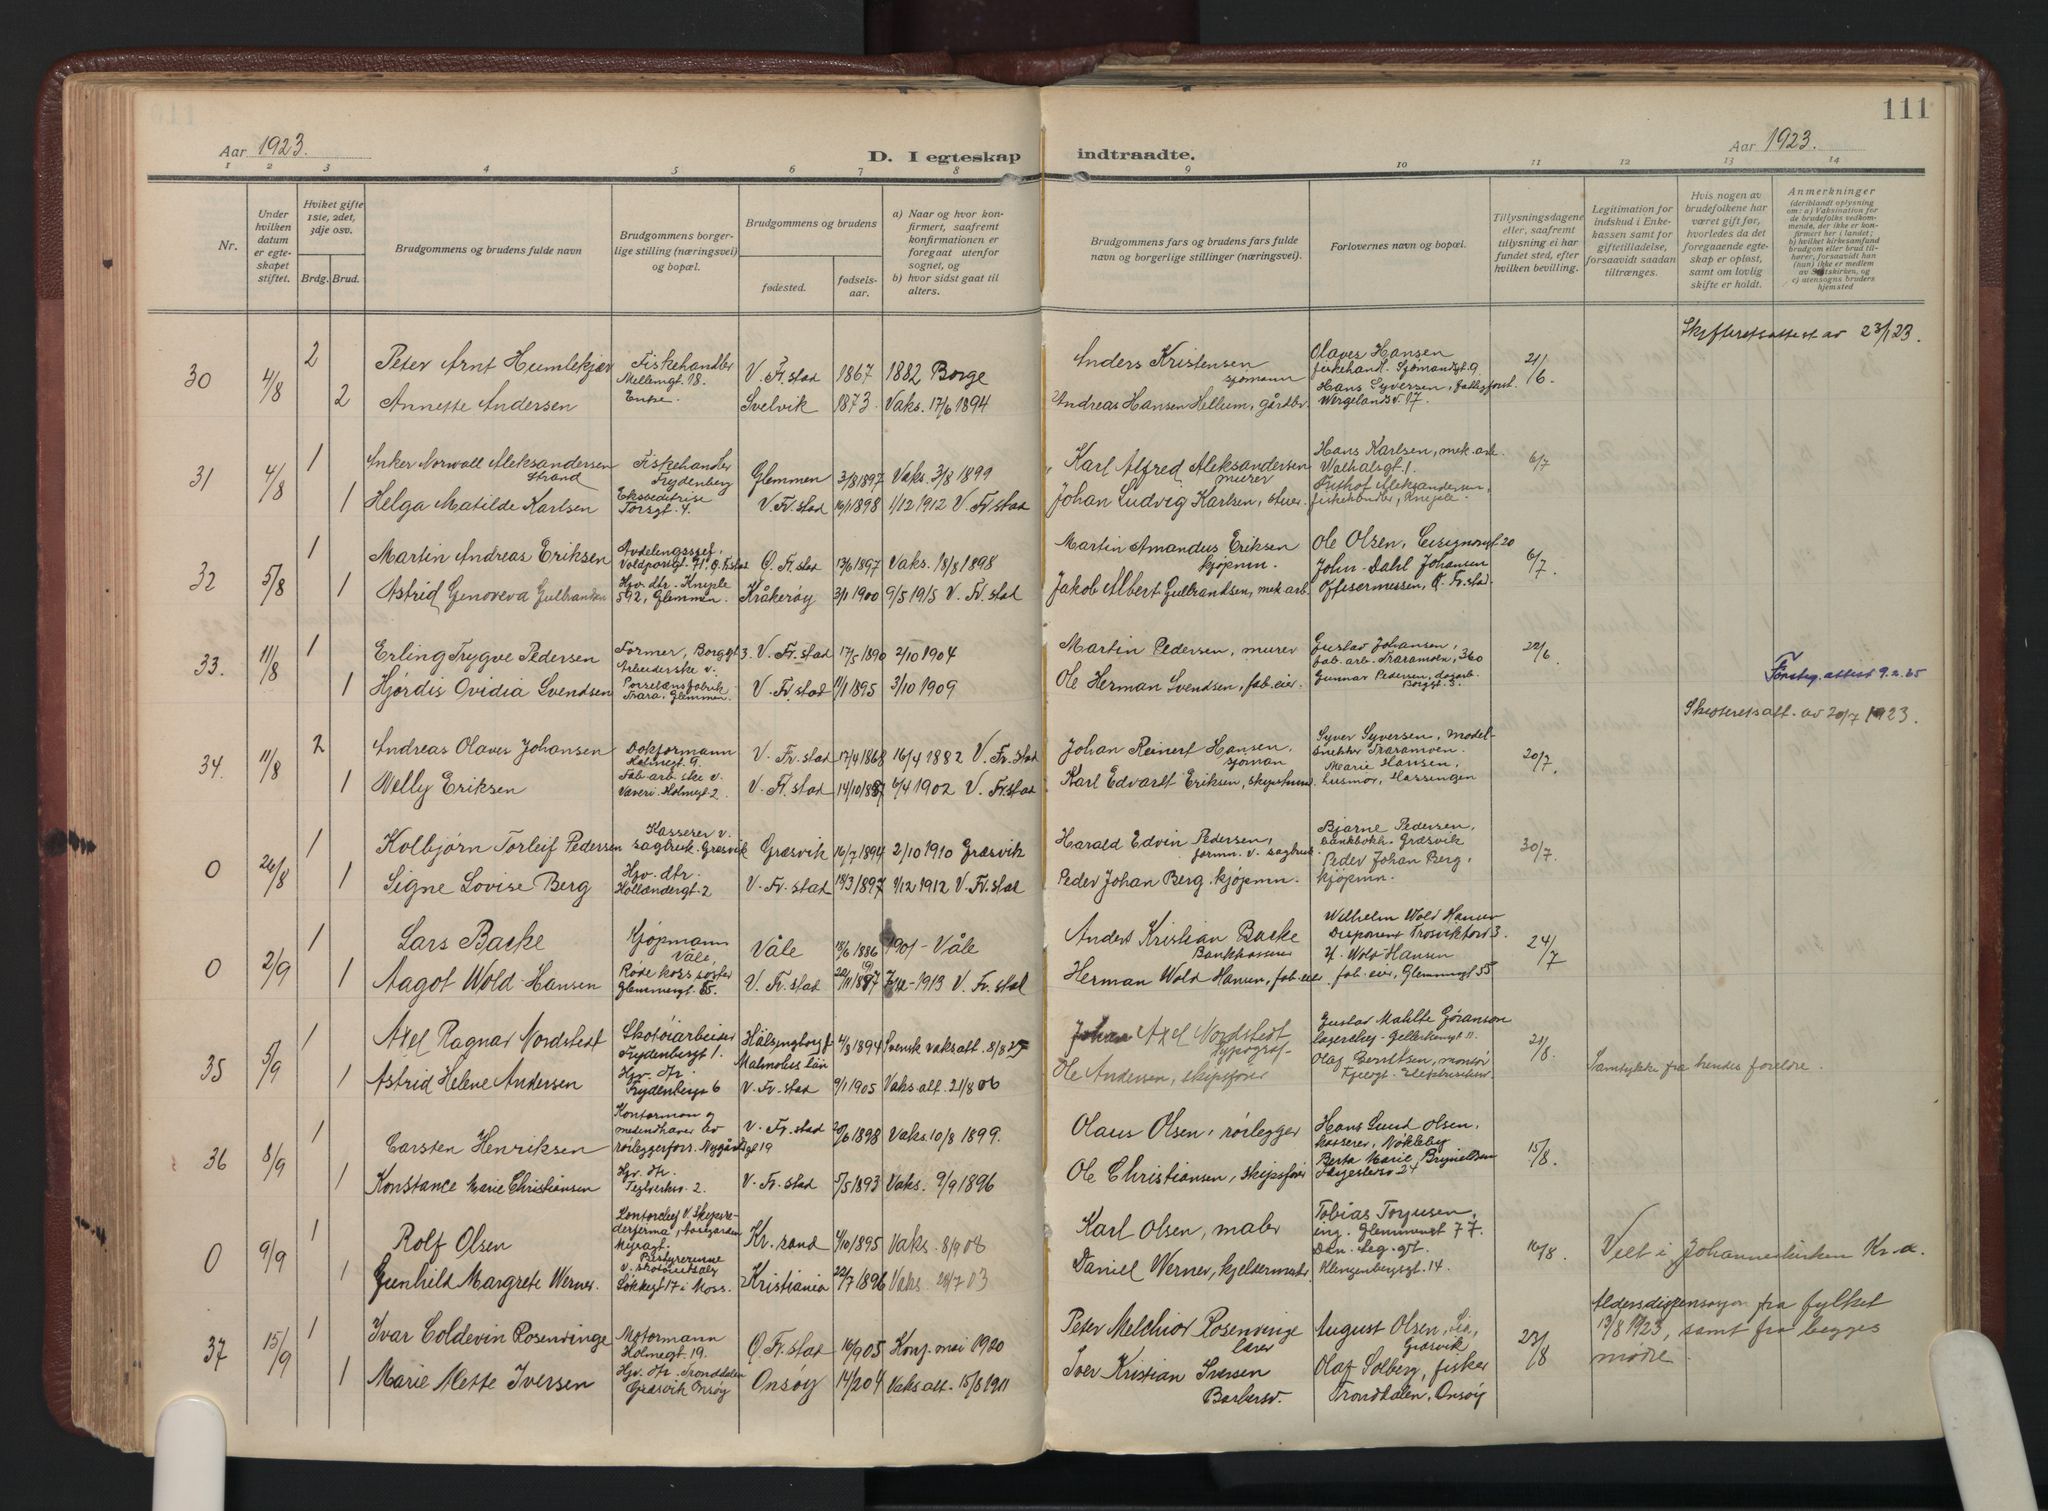 111
Aar 1923.
D. I egteskap indtraadte.
Aar 1923.
1 2 3 4 5 6 7 8 9 10 11 12 13 14
Nr.
Under hvilken datum er egteskapet stiftet.
Hvilket gifte 1ste, 2det, 3dje osv.
Brdg. Brud.
Brudgommens og brudens fulde navn
Brudgommens borgerlige stilling (næringsvei) og bopæl.
Brudgommens og brudens
fødested.
fødselsaar.
a) Naar og hvor konfirmert, saafremt konfirmationen er foregaat utenfor sognet, og
b) hvor sidst gaat til alters.
Brudgommens fars og brudens fars fulde navn og borgerlige stillinger (næringsvei).
Forlovernes navn og bopæl.
Tillysningsdagene eller, saafremt tillysning ei har fundet sted, efter hvilken bevilling.
Legitimation for indskud i Enkekassen samt for giftetilladelse, forsaavidt saadan tiltrænges.
Hvis nogen av brudefolkene har været gift før, hvorledes da det foregaaende egteskap er opløst, samt om lovlig skifte er holdt.
Anmerkninger
(deriblandt oplysning om: a) Vaksination for de brudefolks vedkommende, der ikke er konfirmert her i landet; b) hvilket kirkesamfund brudgom eller brud tilhører, forsaavidt han (hun) ikke er medlem av Statskirken, og c) utensogns bruders hjemsted
30 4/8 2 Peter Arnt Humlekjær Fiskehandler Mellemgt. 18. V. Fr.stad 1867 1882 Borge Anders Kristensen sjømann Olaves Hansen fiskehandl. Sjømandsgt 9. 21/6. Skifteretsattest av 23/1 23.
2 Annette Andersen Enke. Svelvik 1873. Vaks. 17/6 1894 Andreas Hansen Hellum, gårdbr. Hans Syversen, Wergelandsv. 17.
31 4/8 1 Anker Norwall Aleksandersen Strand Fiskehandler Frydenberg Glemmen 3/8 1897 Vaks. 3/8 1899 Karl Alfred Aleksandersen murer Hans Karlsen, mek. arb. Walhalsgt. 1. 6/7
1 Helga Matilde Karlsen Ekspeditrise Torsgt. 4. V. Fr.stad 16/1 1898 1/12 1912 V. Fr.stad Johan Ludvig Karlsen, stuer. Aleksandersen, fiskehandler,
32 5/8 1 Martin Andreas Eriksen Avdelingssjef, Voldportgt. 71. Ø. Fr.stad Ø. Fr.stad 13/6 1897 Vaks. 18/8 1898 Martin Amandus Eriksen kjøpmn. Ole Olsen, 20 6/7.
1 Astrid Genoveva Gulbrandsen Hjv. dtr. Kniple 592, Glemmen. Kråkerøy 3/1 1900 9/5 1915 V. Fr.stad Jakob Albert Gulbrandsen, mek. arb. John Dahl Johansen Offisermessen, Ø. Fr.stad.
33. 11/8 1 Erling Trygve Pedersen Former, Borggt 3. V. Fr.stad 17/5 1890 2/10 1904 Martin Pedersen, murer Gustav Johansen, fab. arb. Traramoen, 360 22/6.
1 Hjørdis Ovidia Svendsen Arbeiderske v. Porselænsfabrik Trara, Glemmen. V. Fr.stad 11/1 1895 3/10 1909 Ole Herman Svendsen, fab. eier. Gunnar Pedersen, Borggt. 3. attest 9.2.65
34. 11/8 2 Andreas Olaves Johansen Dokformann Holmegt. 9. V. Fr.stad 17/4 1868 16/4 1882 V. Fr.stad Johan Reinert Hansen, sjøman Syver Syversen, modelsnekker Traramoen. 20/7. Skifteretsatt. av 20/7 1923.
1 Welly Eriksen Fab. arb.ske v. Væveri. Holmegt. 2 V. Fr.stad 14/10 1887 6/4 1902 V. Fr.stad Karl Edvardt Eriksen, Marie Hansen, husmor, Hassingen
0 26/8 1 Kolbjørn Torleif Pedersen Kasserer v. sagbruk. Græsvik Græsvik 16/7 1894 2/10 1910 Græsvik Harald Edvin Pedersen, formn. v. sagbruk. Bjarne Pedersen, bankbokh. Græsvik 30/7.
1 Signe Lovise Berg Hjv. dtr. Hollendergt. 2 V. Fr.stad 18/3 1897 1/12 1912 V. Fr.stad Peder Johan Berg, kjøpmn. Peder Johan Berg, kjøpmn.
0 2/9 1 Lars Backe Kjøpmann Våle, Våle 18/6 1886 1901 - Våle Anders Kristian Backe Bankkasserer Wilhelm Wold Hansen Disponent Trosvikstrd 3. 24/7
1 Aagot Wold-Hansen Røde kors søster Glemmengt. 55. V. Fr.stad 22/11 1897 7/12 - 1913 V. Fr.stad Herman Wold Hansen, fab. eier H. Wold-Hansen fab. eier, Glemmengt 55
35 5/9 1 Axel Ragnar Nordstedt Skotøiarbeider Frydenbergt 1. Hälsingborg Malmøhus län 4/3 1894 Svensk vaksatt. 8/8 25 Johan Axel Nordstedt typograf Gustav Mahlte Gøranson 21/8. Samtykke fra hendes foreldre.
1 Astrid Helene Andersen Hjv. dtr. Frydenbergt 6 V. Fr.stad 9/1 1905 Vaks. att. 21/8 06 Ole Andersen, skipsfører Olaf Berntsen, montør
36 8/9 1 Carsten Henriksen Kontorman og medindhaver av rørleggerforr. Nygårdsgt 19 V. Fr.stad 20/6 1898 Vaks. 10/8 1899. Olaus Olsen, rørlegger Hans Lund Olsen, kasserer, Nøkleby 15/8.
1 Konstance Marie Christiansen Hjv. dtr. Teglverksv. 2. V. Fr.stad 5/5 1893 Vaks. 9/9 1896 Ole Christiansen, skipsfører Berta Marie Brynildsen 24
0 9/9 1 Rolf Olsen Kontorchef v. Skipsrederfirma, Kr.sand 4/10 1895 Vaks. 8/9 08 Karl Olsen, maler Tobias Torjusen, ing. Glemmengt 77. 16/8. Viet i Johanneskirken Kr.a.
1 Gunhild Margrete Werner. Bestyrerinne v. skotøiutsalg Løkkegt 17 i Moss. Kristiania 22/7 1896 Vaks. 24/7 03 Daniel Werner, kjeldermester Klingenbergsgt. 14.
37 15/9 1 Ivar Coldevin Rosenvinge Motormann Holmegt. 19. Ø. Fr.stad 16/9 05 Konf. mai 1920 Peter Melchior Rosenvinge lærer August Olsen, Græsvik 23/8 Aldersdispensasjon fra fylket 13/8 1923, samt fra begges mødre.
1 Marie Mette Iversen Hjv. dtr. Tronddalen Græsvik Onsøy Onsøy 14/2 04 Vaks. att. 15/8 1911 Iver Kristian Iversen Barbersv. Olaf Solberg, fisker Trondtalen, Onsøy